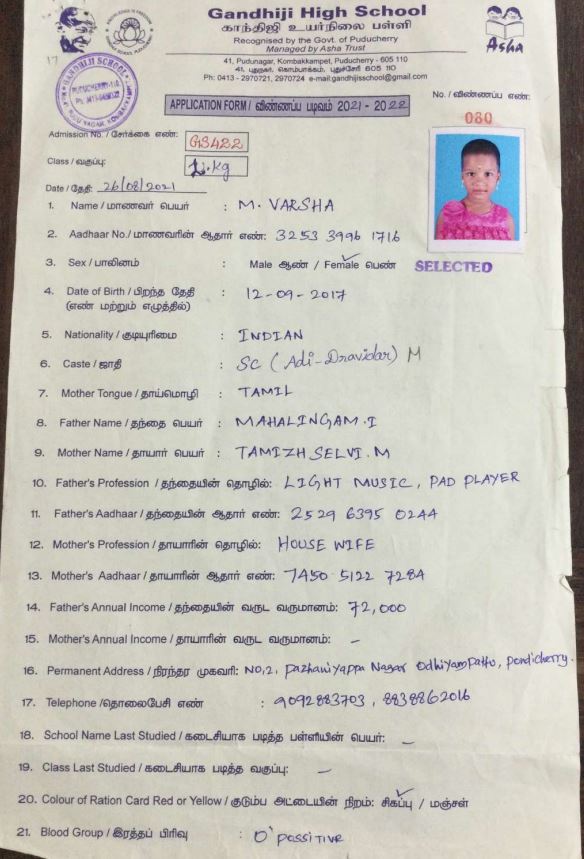 Gandhiji High School
காந்திஜி உயர்நிலை பள்ளி
Recognised by the Govt. of Puducherry
Managed by Asha Trust
Asha
41, Pudunagar, Kombakkampet, Puducherry - 605 110
41, புதுநகர், கொம்பாக்கம், புதுச்சேரி 605 110
Ph: 0413 - 2970721, 2970724 e-mail:gandhijisschool@gmail.com
17
GANDHIJI SCHOOL
APPLICATION FORM / விண்ணப்ப படிவம் 2021 - 2022
No. / விண்ணப்ப எண்:
080
Admission No. / சேர்க்கை எண்: GS422
Class / வகுப்பு: L.kg
Date / தேதி: 26/08/2021
1. Name / மாணவர் பெயர் : M. VARSHA
2. Aadhaar No./ மாணவரின் ஆதார் எண்: 3253 3996 1716
3. Sex / பாலினம் : Male ஆண் / Female பெண்
SELECTED
4. Date of Birth / பிறந்த தேதி : 12-09-2017
(எண் மற்றும் எழுத்தில்)
5. Nationality / குடியுரிமை : INDIAN
6. Caste / ஜாதி : SC (Adi-Dravidar) M
7. Mother Tongue / தாய்மொழி : TAMIL
8. Father Name / தந்தை பெயர் : MAHALINGAM.I
9. Mother Name / தாயார் பெயர் : TAMIZH SELVI.M
10. Father's Profession / தந்தையின் தொழில்: LIGHT MUSIC, PAD PLAYER
11. Father's Aadhaar / தந்தையின் ஆதார் எண்: 2529 6395 0244
12. Mother's Profession / தாயாரின் தொழில்: HOUSE WIFE
13. Mother's Aadhaar / தாயாரின் ஆதார் எண்: 7450 5122 7284
14. Father's Annual Income / தந்தையின் வருட வருமானம்: 72,000
15. Mother's Annual Income / தாயாரின் வருட வருமானம்: -
16. Permanent Address / நிரந்தர முகவரி: NO,2, Pazhaniyappa Nagar Odhiyampattu, Pondicherry.
17. Telephone /தொலைபேசி எண் : 9092883703, 8838862016
18. School Name Last Studied / கடைசியாக படித்த பள்ளியின் பெயர்: -
19. Class Last Studied / கடைசியாக படித்த வகுப்பு: -
20. Colour of Ration Card Red or Yellow / குடும்ப அட்டையின் நிறம்: சிகப்பு / மஞ்சள்
21. Blood Group / இரத்தப் பிரிவு : O' possitive